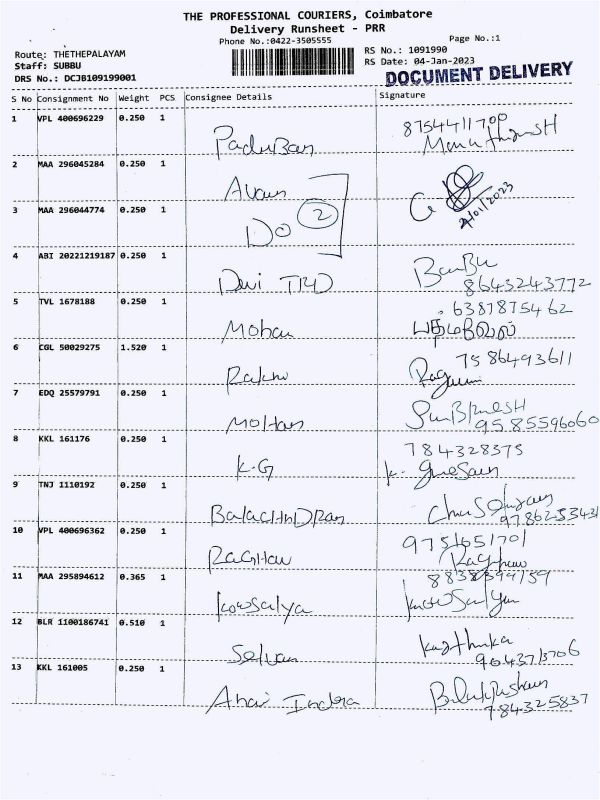 THE PROFESSIONAL COURIERS, Coimbatore
Delivery Runsheet - PRR
Phone No.:0422-3505555
Page No.:1
Route: THETHEPALAYAM
RS No.: 1091990
Staff: SUBBU
RS Date: 04-Jan-2023
DRS No.: DCJB109199001
DOCUMENT DELIVERY
S No Consignment No Weight PCS Consignee Details Signature
1 VPL 400696229 0.250 1
8754411700
2 MAA 296045284 0.250 1
3 MAA 296044774 0.250 1 DO 2
4 ABI 20221219187 0.250 1
8643243772
5 TVL 1678188 0.250 1 Mohan
6381875462
6 CGL 50029275 1.520 1
7586493611
7 EDQ 25579791 0.250 1 Mohan
9585596060
8 KKL 161176 0.250 1 K.G
784328375
9 TNJ 1110192 0.250 1
10 VPL 400696362 0.250 1
9751651701
11 MAA 295894612 0.365 1 Kowsalya
12 BLR 1100186741 0.510 1 Selvan
13 KKL 161005 0.250 1 Indra
784325837